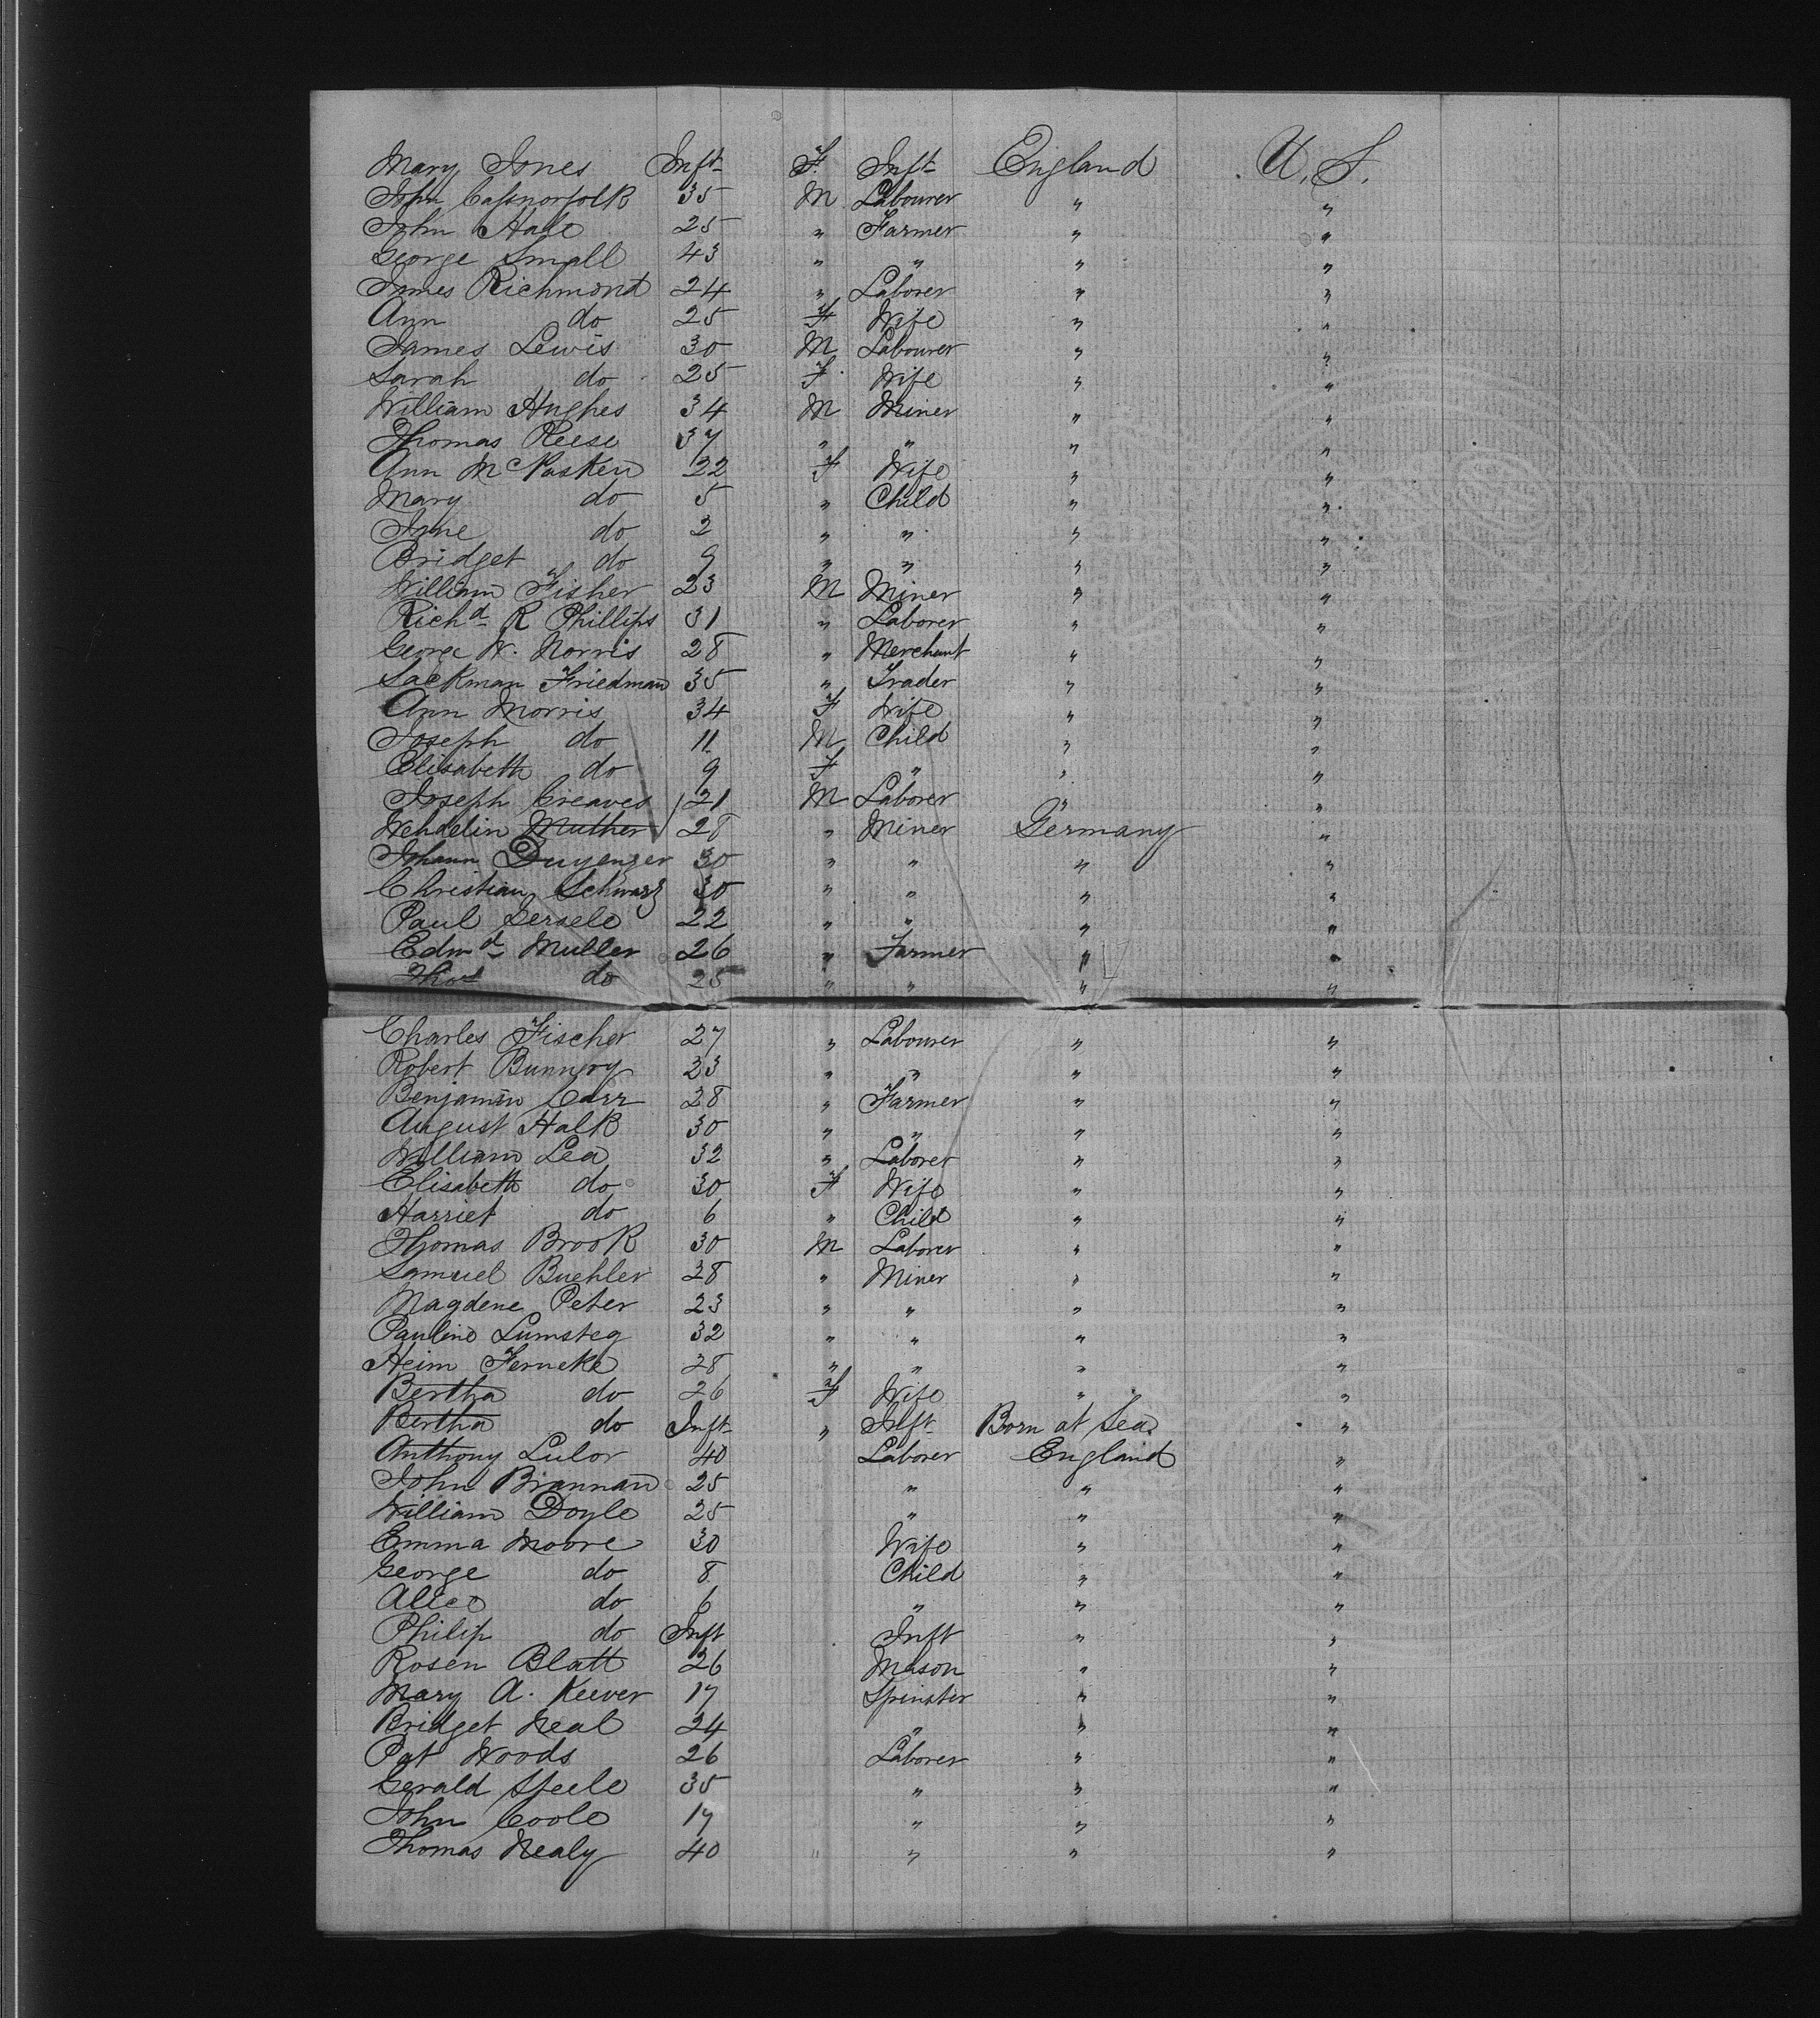 Mary Jones Inft F. Inft England U. S.
John 35 M Labourer " "
John Hale 25 " Farmer " "
George Small 43 " " " "
James Richmond 24 " Laborer " "
Ann do 25 F Wife " "
James Lewis 30 M Labourer " "
Sarah do 25 F. Wife " "
William Hughes 34 M Miner " "
Thomas Reese 37 " " " "
Ann 22 F Wife " "
Mary do 5 " Child " "
Jane do 2 " " " "
Bridget do 9 " " " "
William Fisher 23 M Miner " "
Richd R Phillips 31 " Laborer " "
George W. Norris 28 " Merchant " "
Sackman Friedman 35 " Trader " "
Ann Morris 34 F Wife " "
Joseph do 11 M Child " "
Elisabeth do 9 F " " "
Joseph Greaves 21 M Laborer " "
Wendelin Muther 28 " Miner Germany "
Johann 30 " " " "
Christian Schwarz 30 " " " "
Paul 22 " " " "
Edmd Muller 26 " Farmer " "
Thos do 25 " " " "
Charles Fischer 27 " Labourer " "
Robert 33 " " " "
Benjamin Carr 28 " Farmer " "
August Halk 30 " " " "
William Lea 32 " Laborer " "
Elisabeth do 30 F Wife " "
Harriet do 6 " Child " "
Thomas Brook 30 M Laborer " "
Samuel Buehler 28 " Miner " "
Magdene Peter 23 " " " "
Pauline Lumsteg 32 " " " "
Heim Ferneke 28 " " " "
Bertha do 26 F Wife " "
Bertha do Inft " Inft Born at Sea "
Anthony Lulor 40 Laborer England "
John Brannan 25 " " "
William Doyle 25 " " "
Emma Moore 30 Wife " "
George do 8 Child " "
Alice do 6 " " "
Philip do Inft Inft " "
Rosen Blatt 26 Mason " "
Mary A. Keever 17 Spinster " "
Bridget Neal 24 " " "
Pat Woods 26 Laborer " "
Gerald Steele 35 " " "
John Coole 17 " " "
Thomas Nealy 40 " " " "